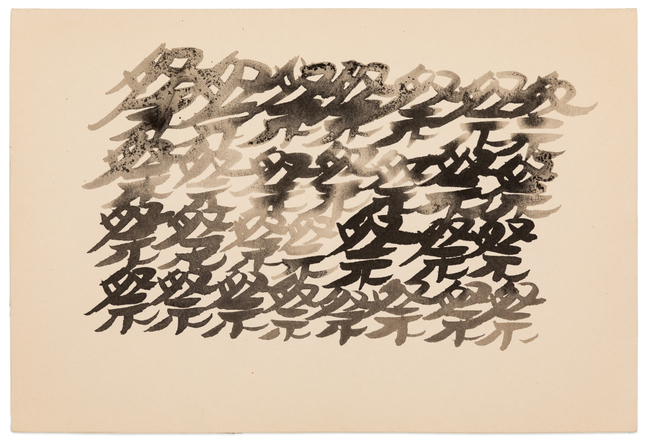 祭祭祭祭祭祭祭
祭祭祭祭祭祭祭
祭祭祭祭祭祭祭
祭祭祭祭祭祭祭祭